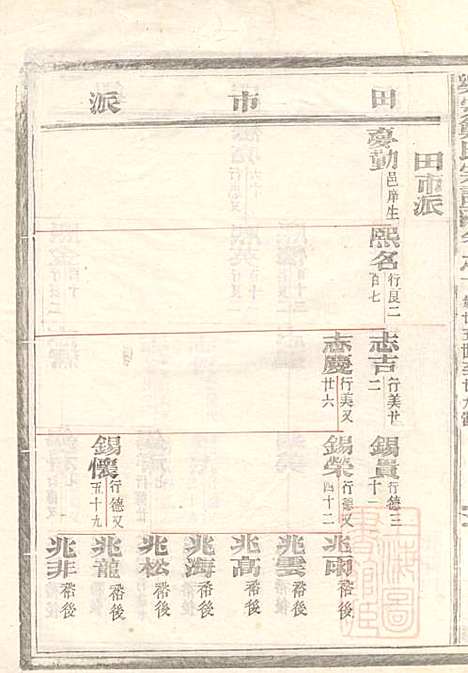 田市派
田市派
夣勤 邑庠生
熙名 行艮二百七
志吉 行美廿二
志慶 行美又廿六
錫貴 行德三十二
錫榮 行德又四十二
錫懷 行德又五十九
兆雨 畨後
兆雲 畨後
兆高 畨後
兆海 畨後
兆松 畨後
兆龍 畨後
兆非 畨後